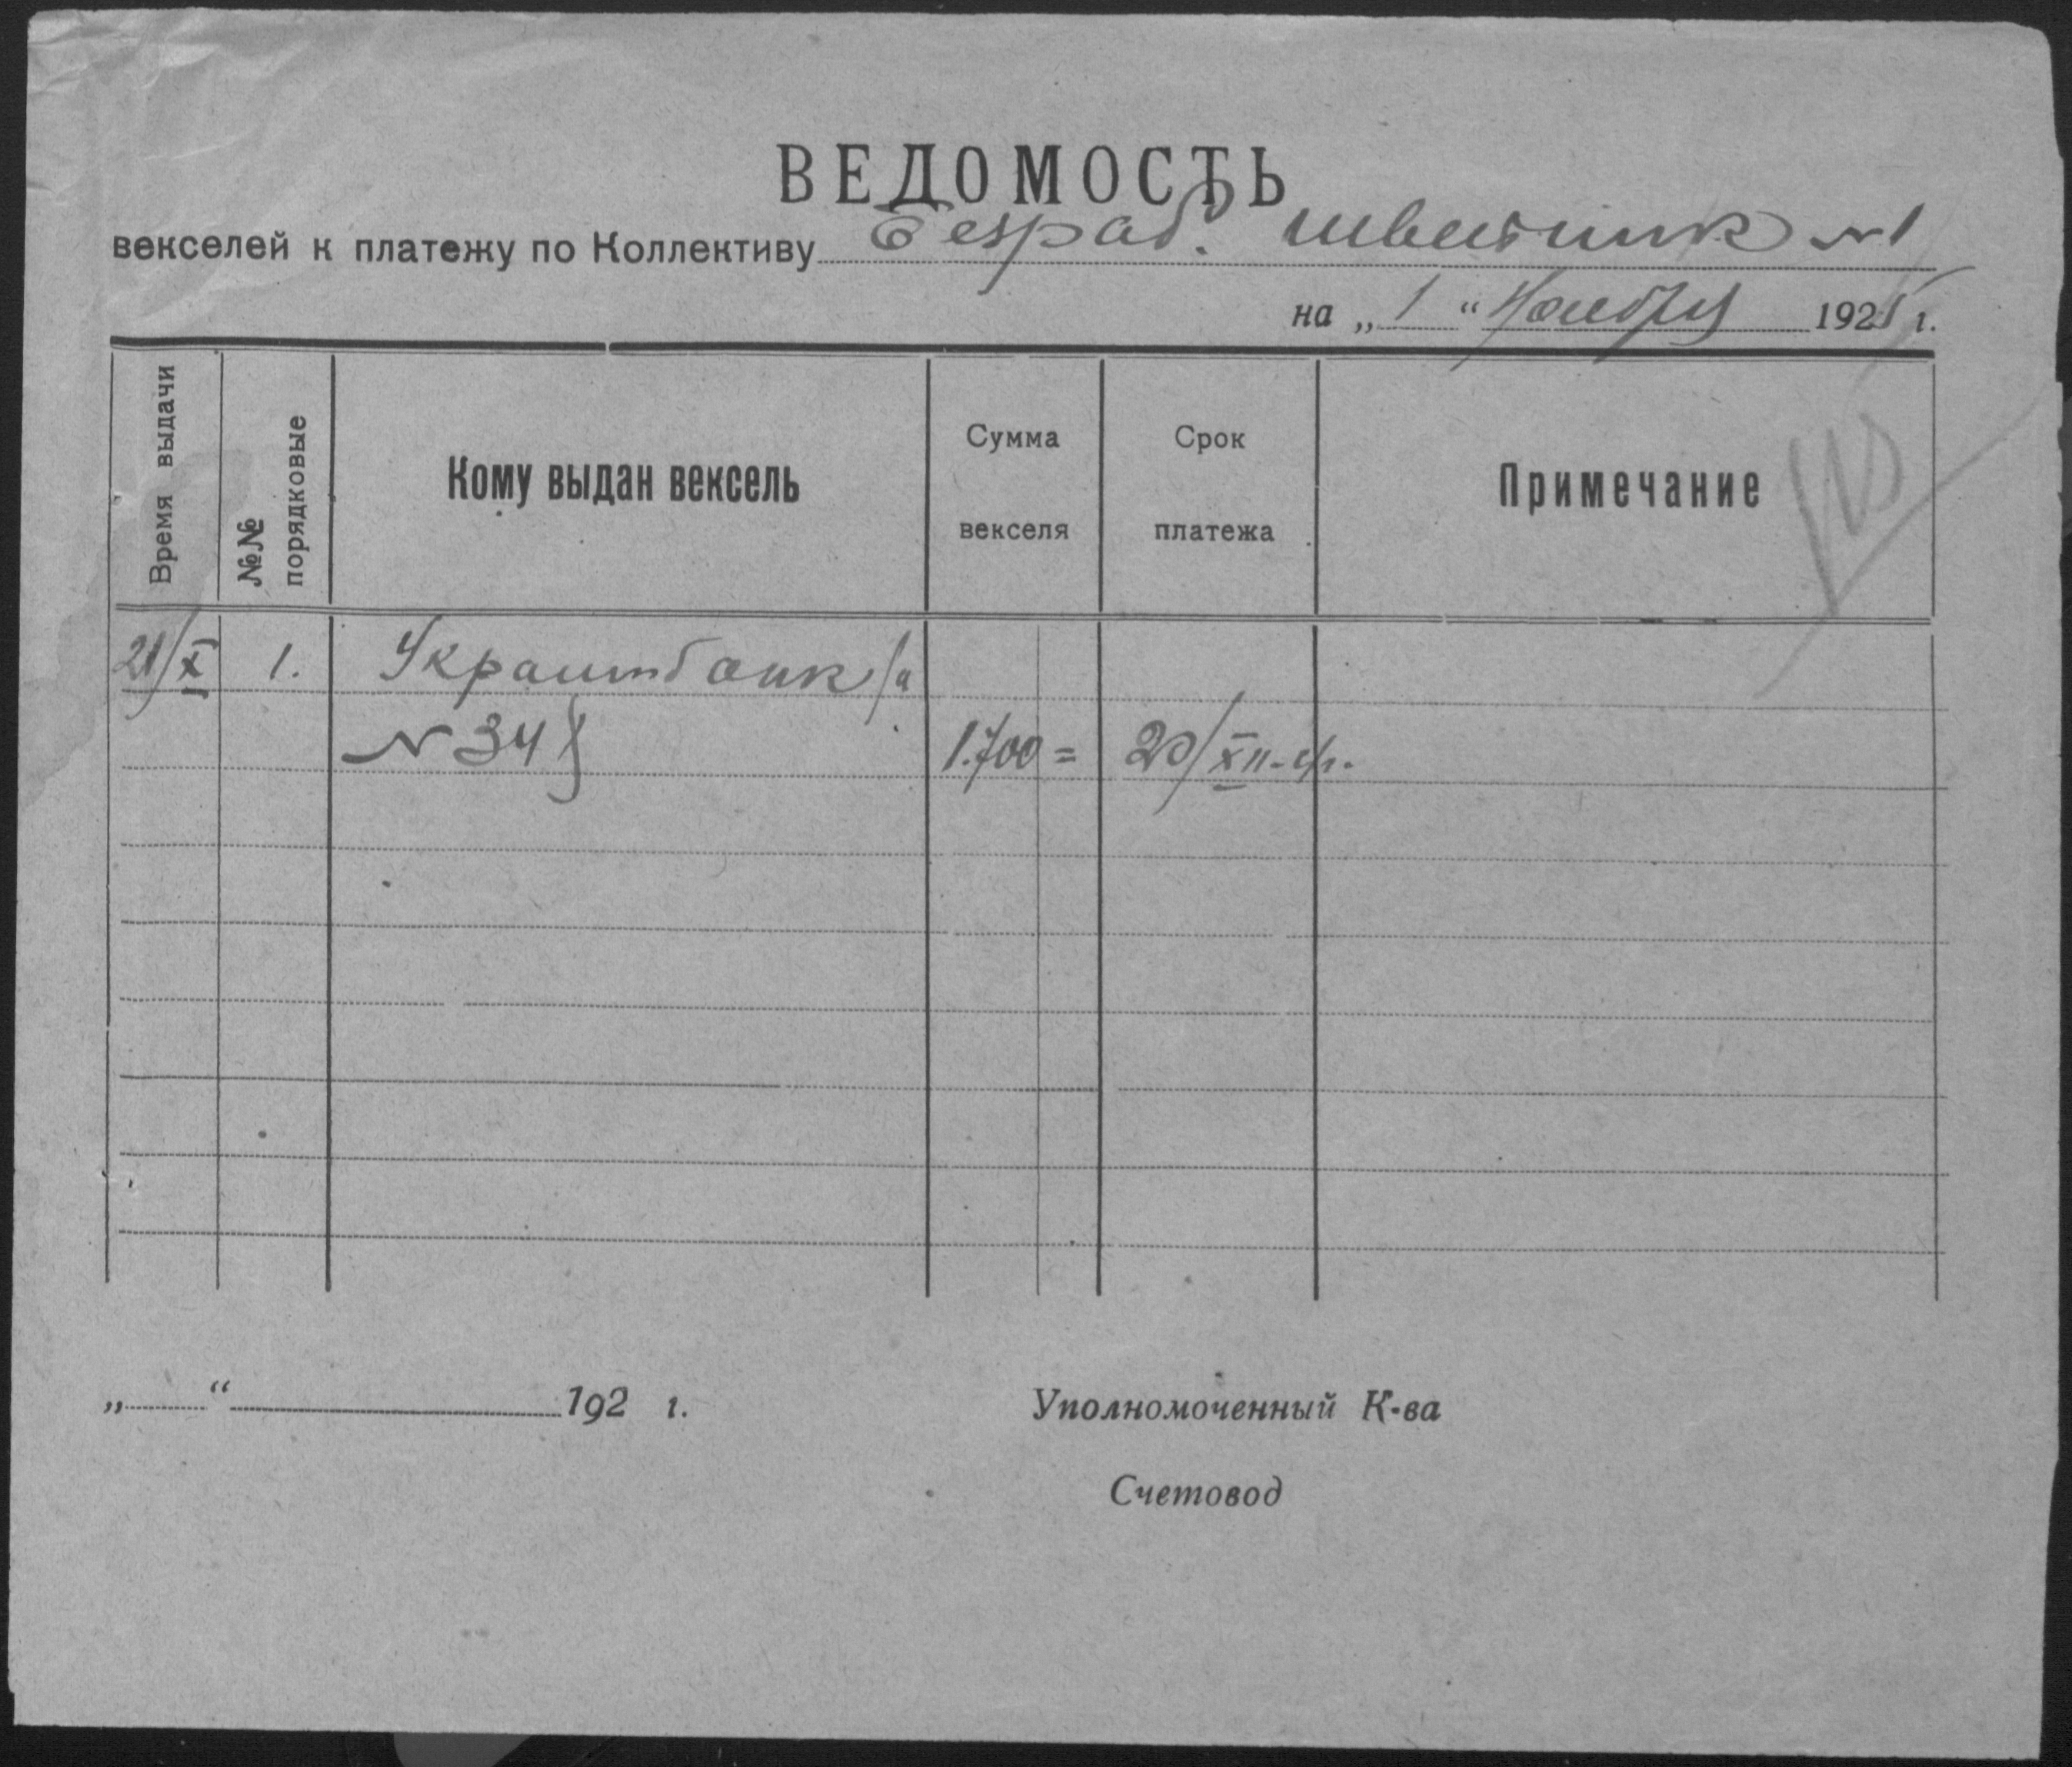 ВЕДОМОСТЬ
векселей к платежу по Коллективу безраб. швейник №1
на „ 1 “ Ноября 1925 г.
Время выдачи
№№ порядковые
Кому выдан вексель
Сумма векселя
Срок платежа
Примечание
21/X 1.
№ 34 1.700 = 20/XII
„ “ 192 г.
Уполномоченный К-ва
Счетовод